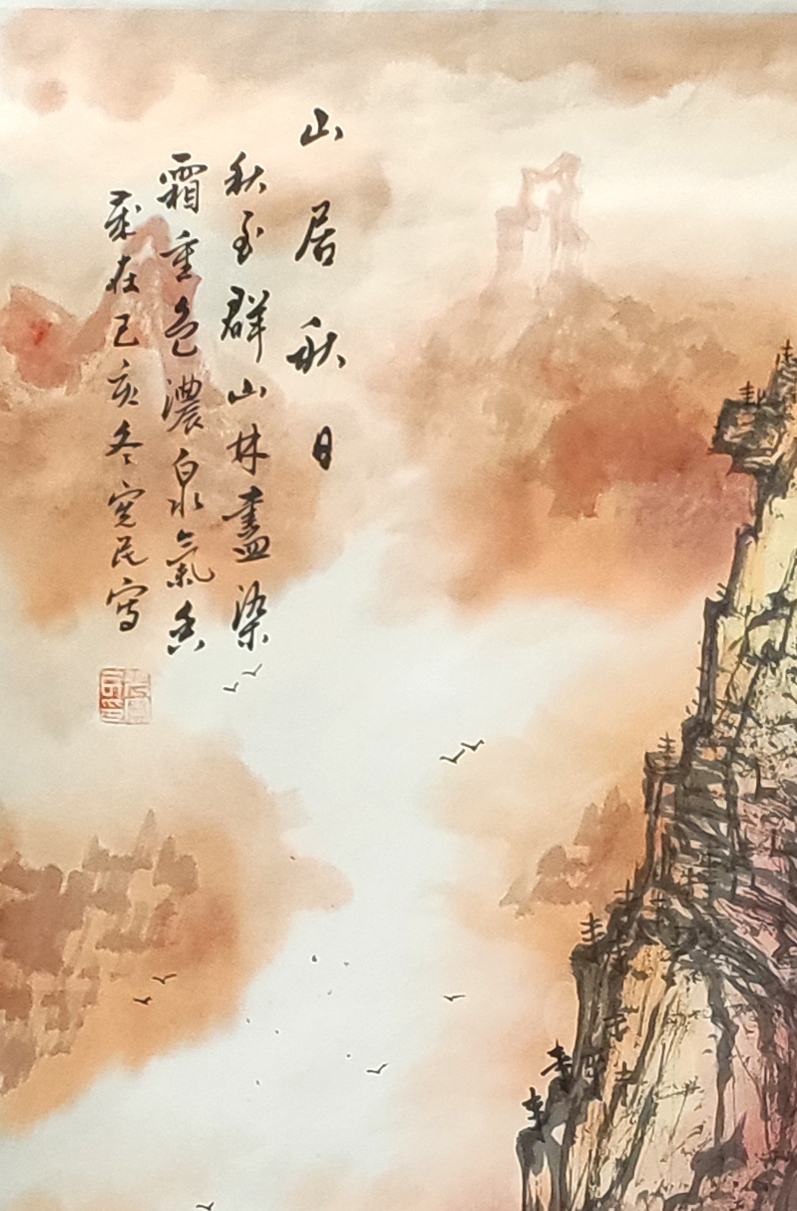 山居秋日
秋至群山林盡染
霜重色濃泉氣香
歲在己亥冬寬民寫